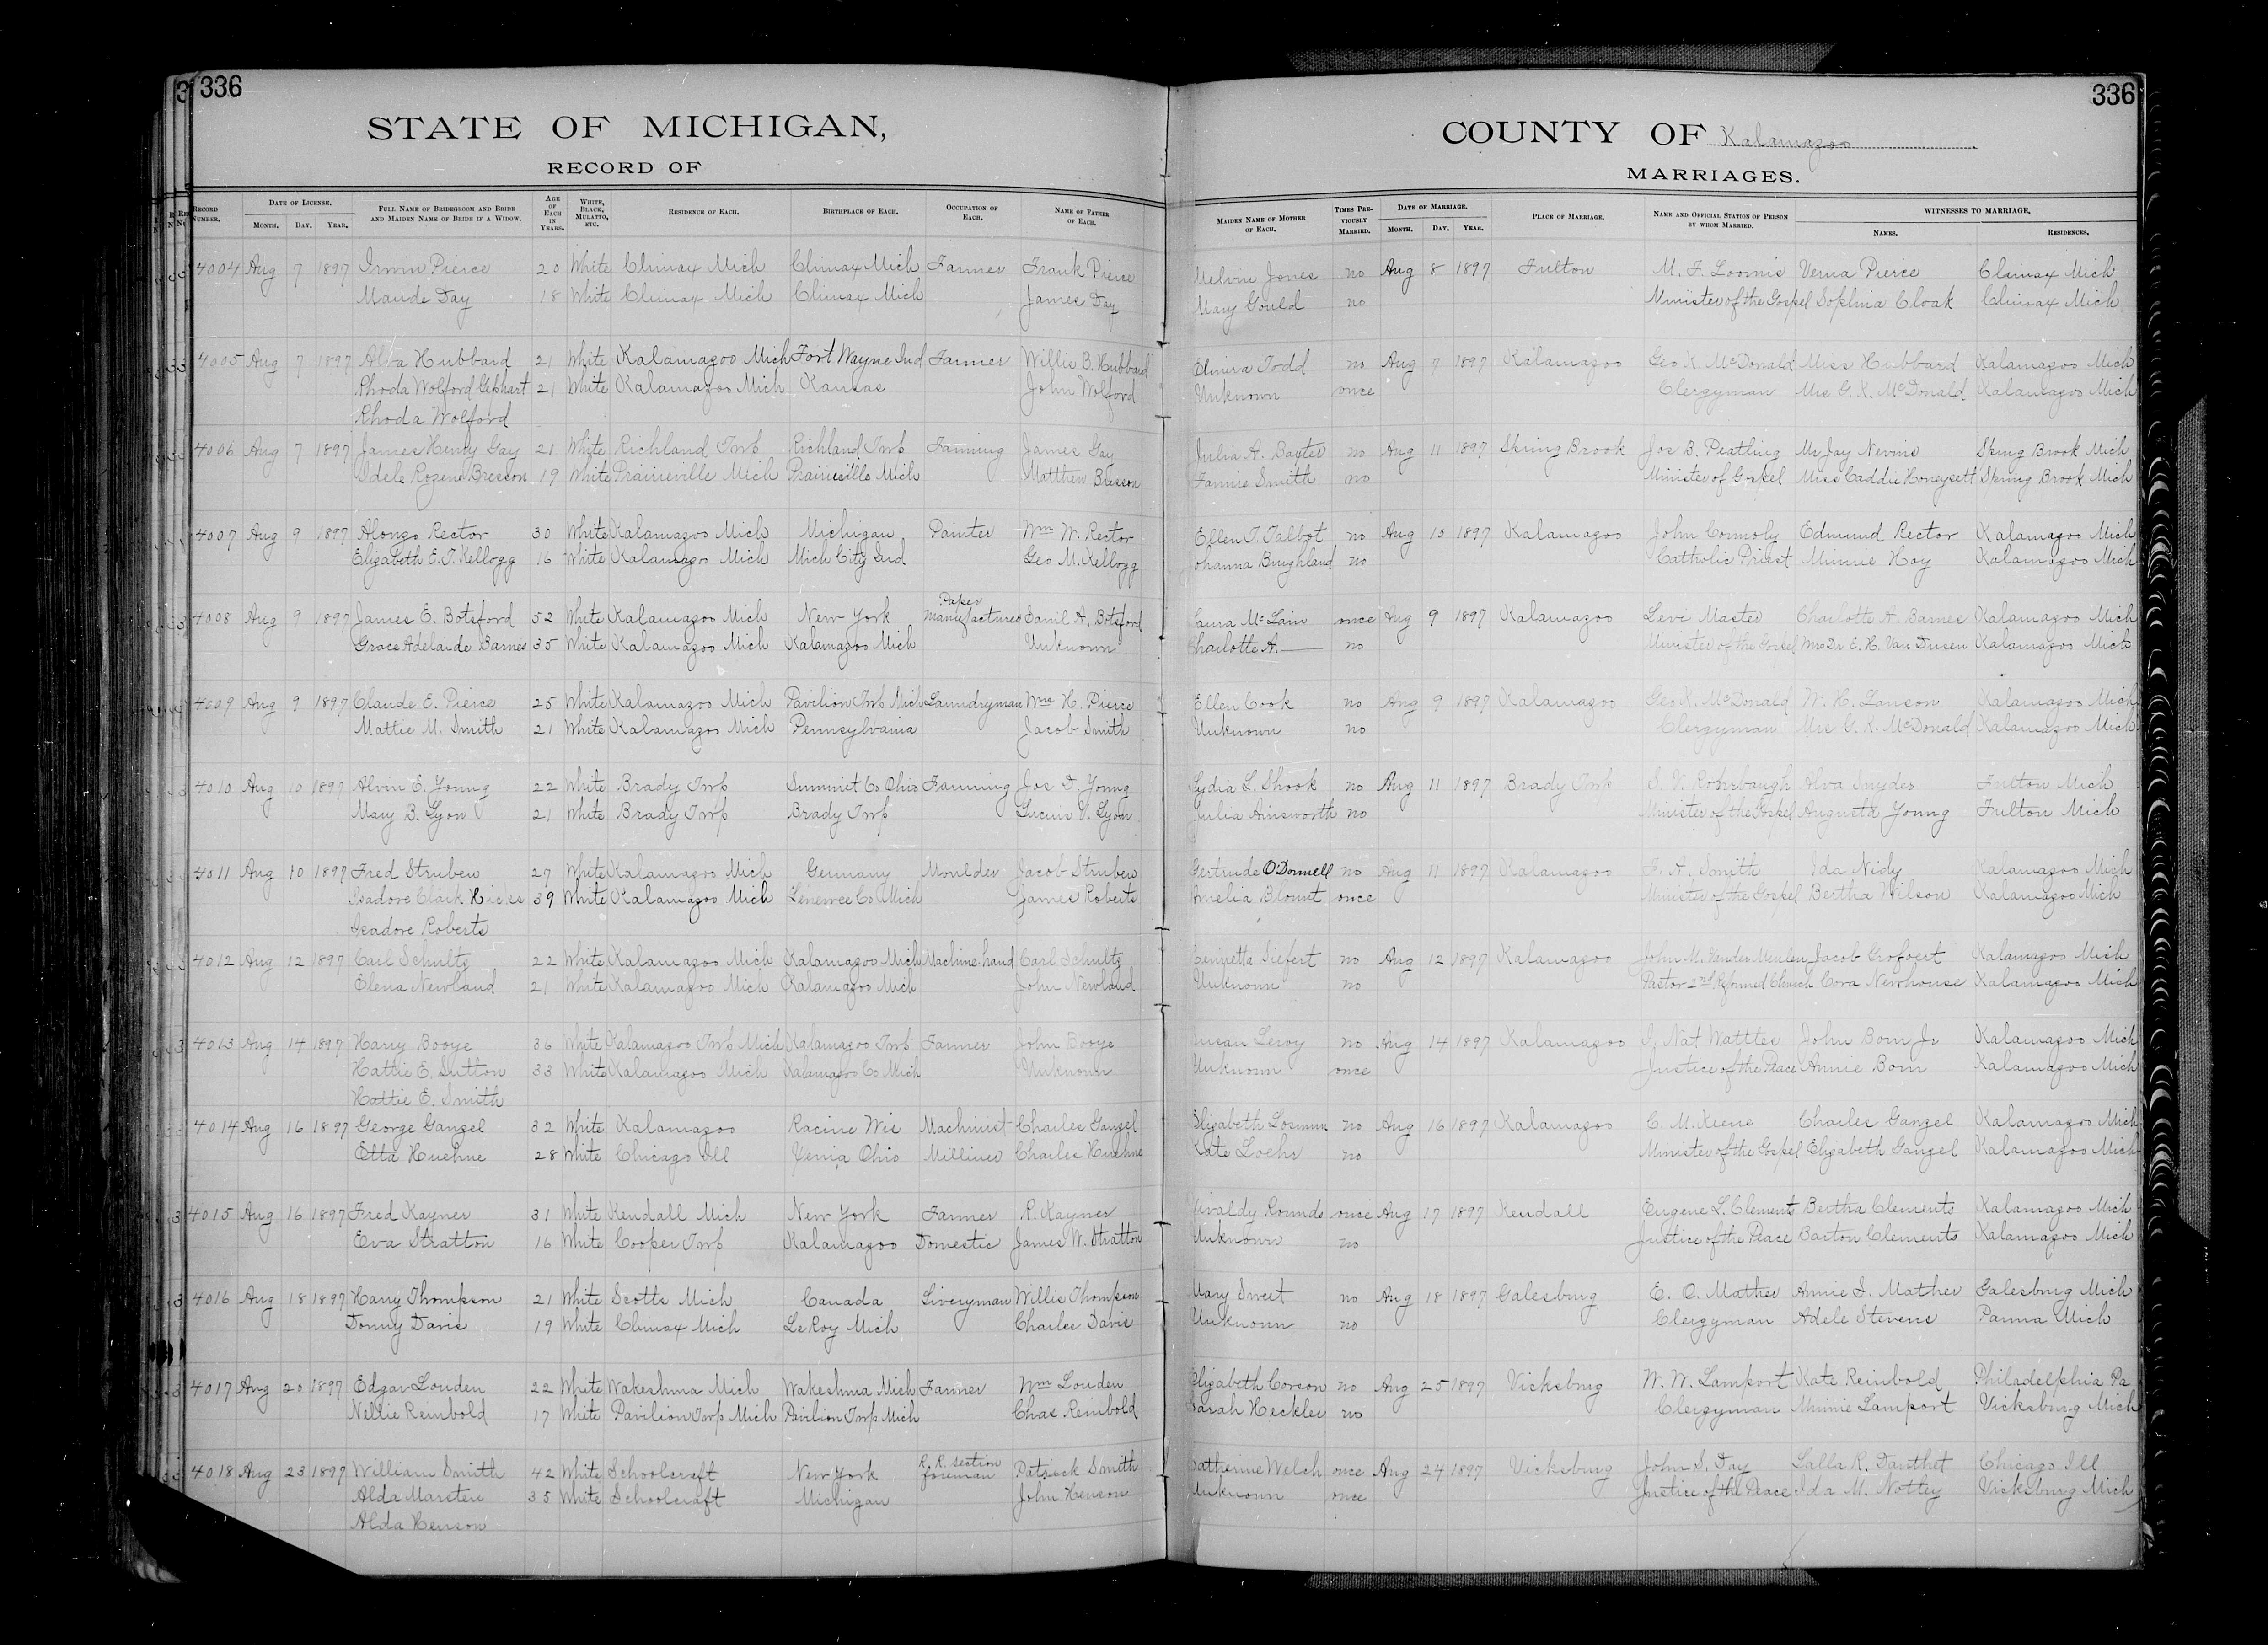 336
336
STATE OF MICHIGAN,
COUNTY OF Kalamazoo
RECORD OF
MARRIAGES.
RECORD NUMBER. DATE OF LICENSE. MONTH. DAY. YEAR. FULL NAME OF BRIDEGROOM AND BRIDE AND MAIDEN NAME OF BRIDE IF A WIDOW. AGE OF EACH IN YEARS. WHITE, BLACK, MULATTO, ETC. RESIDENCE OF EACH. BIRTHPLACE OF EACH. OCCUPATION OF EACH. NAME OF FATHER OF EACH. MAIDEN NAME OF MOTHER OF EACH. TIMES PREVIOUSLY MARRIED. DATE OF MARRIAGE. MONTH. DAY. YEAR. PLACE OF MARRIAGE. NAME AND OFFICIAL STATION OF PERSON BY WHOM MARRIED. WITNESSES TO MARRIAGE. NAMES. RESIDENCES.
4004 Aug 7 1897 Irwin Pierce 20 White Climax Mich Climax Mich Farmer Frank Pierce Melvin Jones no Aug 8 1897 Fulton M. F. Loomis Verna Pierce Climax Mich
Maude Day 18 White Climax Mich Climax Mich James Day Mary Gould no Minister of the Gospel Sophina Cloak Climax Mich
4005 Aug 7 1897 Alva Hubbard 21 White Kalamazoo Mich Fort Wayne Ind Farmer Willis B. Hubbard Elmira Todd no Aug 7 1897 Kalamazoo Geo K. McDonald Miss Hubbard Kalamazoo Mich
Rhoda Wolford Gephart 21 White Kalamazoo Mich Kansas John Wolford Unknown once Clergyman Mrs G. K. McDonald Kalamazoo Mich
Rhoda Wolford
4006 Aug 7 1897 James Henry Gay 21 White Richland Twp Richland Twp Farming James Gay Julia A. Baxter no Aug 11 1897 Spring Brook Jos B. Peatling Mr Jay Nevins Spring Brook Mich
Idele Rozene Bresson 19 White Prairieville Mich Prairieville Mich Matthew Bresson Fannie Smith no Minister of Gospel Miss Caddie Honeysett Spring Brook Mich
4007 Aug 9 1897 Alonzo Rector 30 White Kalamazoo Mich Michigan Painter Wm W. Rector Ellen T. Talbot no Aug 10 1897 Kalamazoo John Connoly Edmund Rector Kalamazoo Mich
Elizabeth E. T. Kellogg 16 White Kalamazoo Mich Mich City Ind Geo M. Kellogg Johanna Burghland no Catholic Priest Minnie Hoy Kalamazoo Mich
4008 Aug 9 1897 James E. Botsford 52 White Kalamazoo Mich New York Paper Manufacturer Danil A. Botsford Laura McLain once Aug 9 1897 Kalamazoo Levi Master Charlotte A. Barnes Kalamazoo Mich
Grace Adelaide Barnes 35 White Kalamazoo Mich Kalamazoo Mich Unknown Charlotte A. — no Minister of the Gospel Mrs Dr E. H. Van Dusen Kalamazoo Mich
4009 Aug 9 1897 Claude E. Pierce 25 White Kalamazoo Mich Pavilion Twp Mich Laundryman Wm H. Pierce Ellen Cook no Aug 9 1897 Kalamazoo Geo K. McDonald W. H. Lawson Kalamazoo Mich
Mattie M. Smith 21 White Kalamazoo Mich Pennsylvania Jacob Smith Unknown no Clergyman Mrs G. K. McDonald Kalamazoo Mich
4010 Aug 10 1897 Alvin E. Young 22 White Brady Twp Summit Co Ohio Farming Jos D. Young Lydia L. Shook no Aug 11 1897 Brady Twp S. V. Rohrbaugh Alva Snyder Fulton Mich
Mary B. Lyon 21 White Brady Twp Brady Twp Lucius V. Lyon Julia Ainsworth no Minister of the Gospel Augusta Young Fulton Mich
4011 Aug 10 1897 Fred Struben 27 White Kalamazoo Mich Germany Moulder Jacob Struben Gertrude O'Donnell no Aug 11 1897 Kalamazoo Smith Ida Nidy Kalamazoo Mich
Isadore Clark Hicks 39 White Kalamazoo Mich Lenewee Co Mich James Roberts Amelia Blount once Minister of the Gospel Bertha Wilson Kalamazoo Mich
Isadore Roberts
4012 Aug 12 1897 Carl Schultz 22 White Kalamazoo Mich Kalamazoo Mich Machine hand Carl Schultz Henrietta Siefert no Aug 12 1897 Kalamazoo John M. VanderMeulen Jacob Grofvert Kalamazoo Mich
Elena Newland 21 White Kalamazoo Mich Kalamazoo Mich John Newland Unknown no Pastor 2nd Reformed Church Cora Newhouse Kalamazoo Mich
4013 Aug 14 1897 Harry Booye 36 White Kalamazoo Twp Mich Kalamazoo Twp Farmer John Booye Susan Leroy no Aug 14 1897 Kalamazoo J. Nat Wattles John Born Jr Kalamazoo Mich
Hattie E. Sutton 33 White Kalamazoo Mich Kalamazoo Co Mich Unknown Unknown once Justice of the Peace Annie Born Kalamazoo Mich
Hattie E. Smith
4014 Aug 16 1897 George Gangel 32 White Kalamazoo Racine Wis Machinist Charles Gangel Elizabeth no Aug 16 1897 Kalamazoo C. M. Keene Charles Gangel Kalamazoo Mich
Etta Huehne 28 White Chicago Ill Xenia Ohio Milliner Charles Huehne Kate Loehr no Minister of the Gospel Elizabeth Gangel Kalamazoo Mich
4015 Aug 16 1897 Fred Kayner 31 White Kendall Mich New York Farmer R. Kayner Rounds once Aug 17 1897 Kendall Eugene L. Clements Bertha Clements Kalamazoo Mich
Eva Stratton 16 White Cooper Twp Kalamazoo Domestic James W. Stratton Unknown no Justice of the Peace Barton Clements Kalamazoo Mich
4016 Aug 18 1897 Harry Thompson 21 White Scotts Mich Canada Liveryman Willis Thompson Mary Sweet no Aug 18 1897 Galesburg E. O. Mather Annie I. Mather Galesburg Mich
Donny Davis 19 White Climax Mich LeRoy Mich Charles Davis Unknown no Clergyman Adele Stevens Parma Mich
4017 Aug 20 1897 Edgar Louden 22 White Wakeshma Mich Wakeshma Mich Farmer Wm Louden Elizabeth Corson no Aug 25 1897 Vicksburg W. W. Lamport Kate Reinbold Philadelphia Pa
Nellie Reinbold 17 White Pavilion Twp Mich Pavilion Twp Mich Chas Reinbold Sarah Heckler no Clergyman Minnie Lamport Vicksburg Mich
4018 Aug 23 1897 William Smith 42 White Schoolcraft New York R. R. section foreman Patrick Smith Catherine Welch once Aug 24 1897 Vicksburg John S. Day Lalla R. Danthet Chicago Ill
Alda Marsten 35 White Schoolcraft Michigan John Henson Unknown once Justice of the Peace Ida M. Nottey Vicksburg Mich
Alda Henson